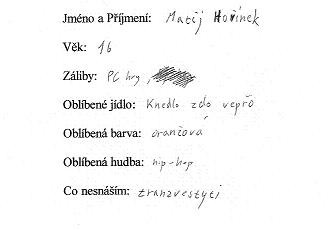 Jméno a Příjmení: Matěj Hořínek
Věk: 16
Záliby: PC hry,
Oblíbené jídlo: Knedlo zelo vepřo
Oblíbená barva: oranžová
Oblíbená hudba: hip-hop
Co nesnáším: tranzvestyti